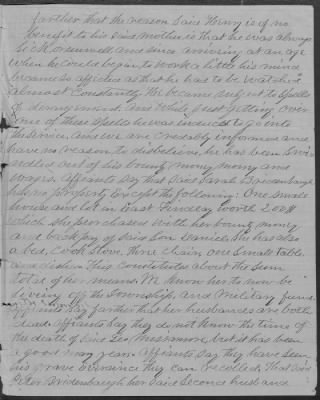 farther that the reason Said Henry is of no
benefit to his Said Mother is that he was always
Sickly and since arriving at an age
when he could begin to work a little his mind
became so affected as that he has to be watched
almost Constantly He became subject to Spells
of derangement and while just getting over
one of these Spells he was induced to go into
the Service, and we are credably informed and
have no reason to disbelieve he has been Swin
dled out of his bounty money and
wages. Affiants Say that Said Sarah Bridenbaugh
has no property Except the following: One Small
house and lot in East Findlay worth 200$
which She purchased with her bounty money
and back pay of Said Son Daniel. She has also
a bed, Cook Stove, three chairs, one Small table
and dishes. This Constitutes about the Sum
total of her means. We know her to now be
liveing off the Township, and Military fund
Affiants Say farther that her husbands are both
dead. Affiants Say they do not know the time of
the death of Said Geo. but it has been
a good many years. Affiants Say they have seen
his grave they can recollect. That Said
Peter Bridenbaugh her Said Second husband